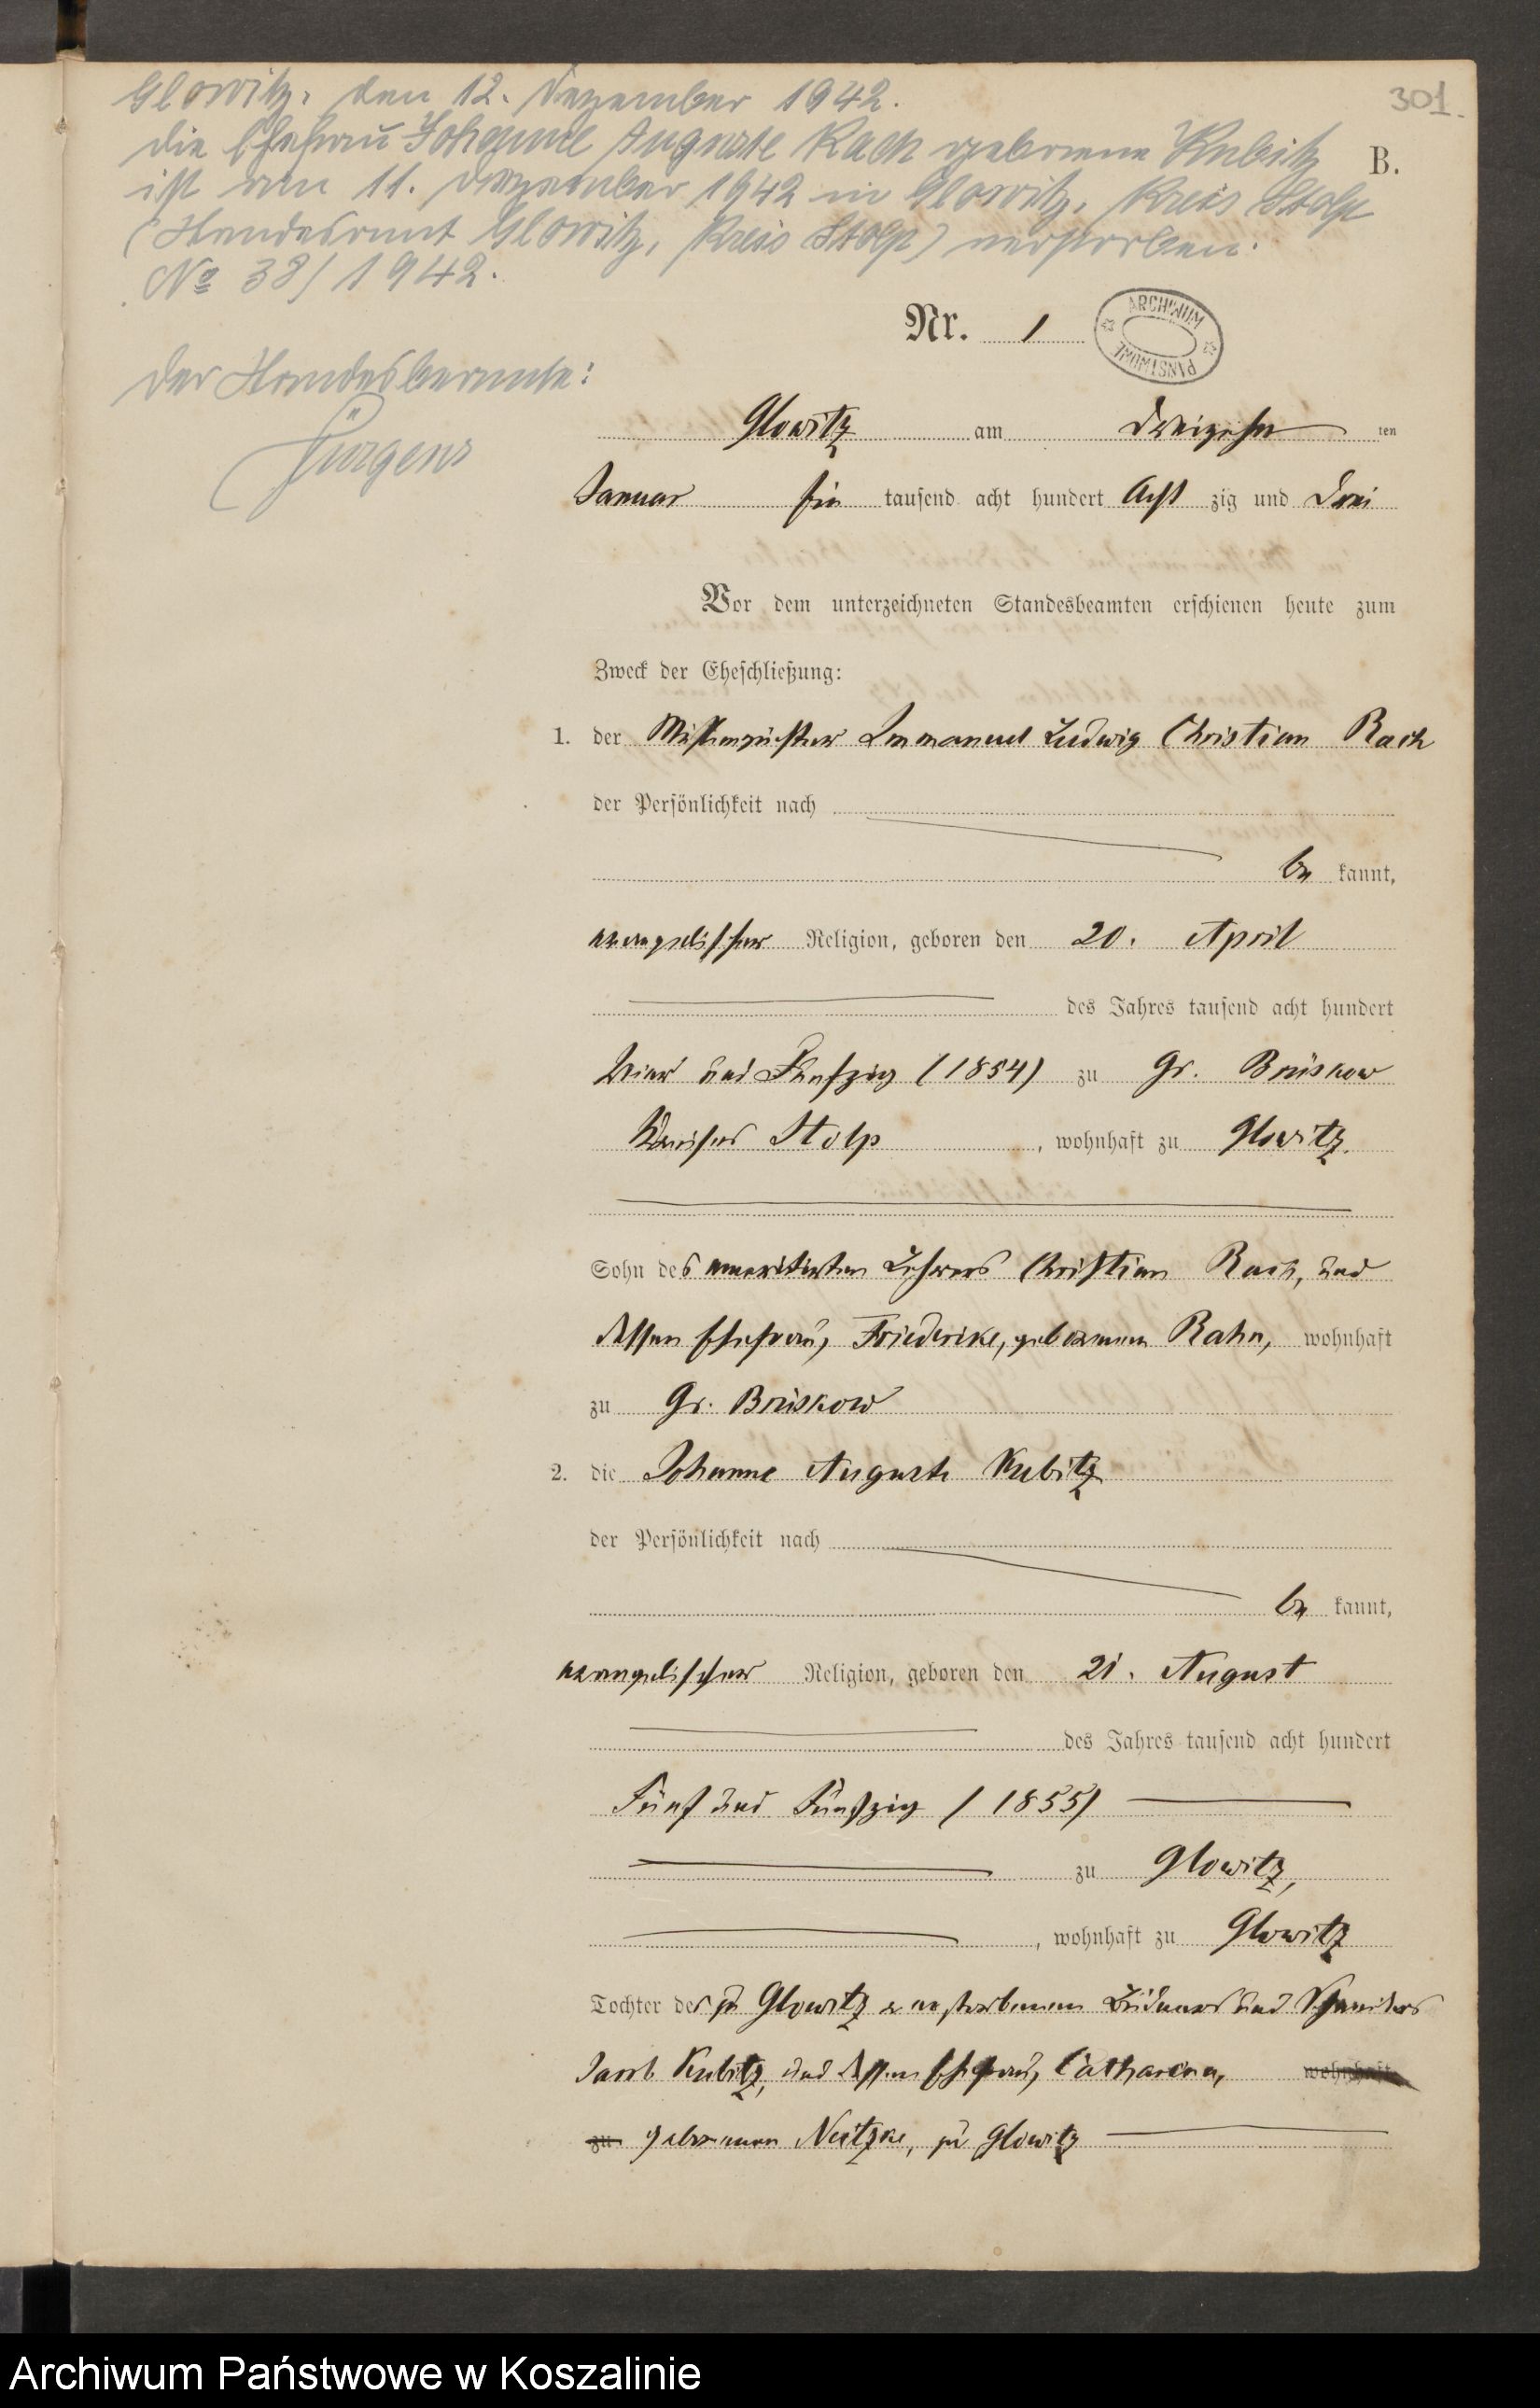 Glowitz, den 12. Dezember 1942.
301.
die Ehefrau Johanne Auguste Rach geborene Kubitz
B.
ist am 11. Dezember 1942 in Glowitz, Kreis Stolp
(Standesamt Glowitz, Kreis Stolp) verstorben.
No 38/1942.
Nr. 1
ARCHIWUM PAŃSTWOWE
Der Standesbeamte:
Jürgens
Glowitz am Dreizehn ten
Januar Ein tausend acht hundert Acht zig und Drei
Vor dem unterzeichneten Standesbeamten erschienen heute zum
Zweck der Eheschließung:
1. der Immanuel Ludwig Christian Rach
der Persönlichkeit nach
be kannt,
evangelischer Religion, geboren den 20. April
des Jahres tausend acht hundert
Vier und Fünfzig (1854) zu Gr. Brüskow
Kreises Stolp, wohnhaft zu Glowitz.
Sohn des emeritirten Lehrers Christian Rach, und
dessen Ehefrau, Friederike, geborenen Rahn, wohnhaft
zu Gr. Brüskow
2. die Johanne Auguste Kubitz
der Persönlichkeit nach
be kannt,
evangelischer Religion, geboren den 21. August
des Jahres tausend acht hundert
Fünf und Fünfzig (1855)
zu Glowitz,
, wohnhaft zu Glowitz
Tochter des zu Glowitz verstorbenen Büdners und Schneiders
Jacob Kubitz, und dessen Ehefrau, Catharina, wohnhaft
zu geborenen Neitzke, zu Glowitz
Archiwum Państwowe w Koszalinie